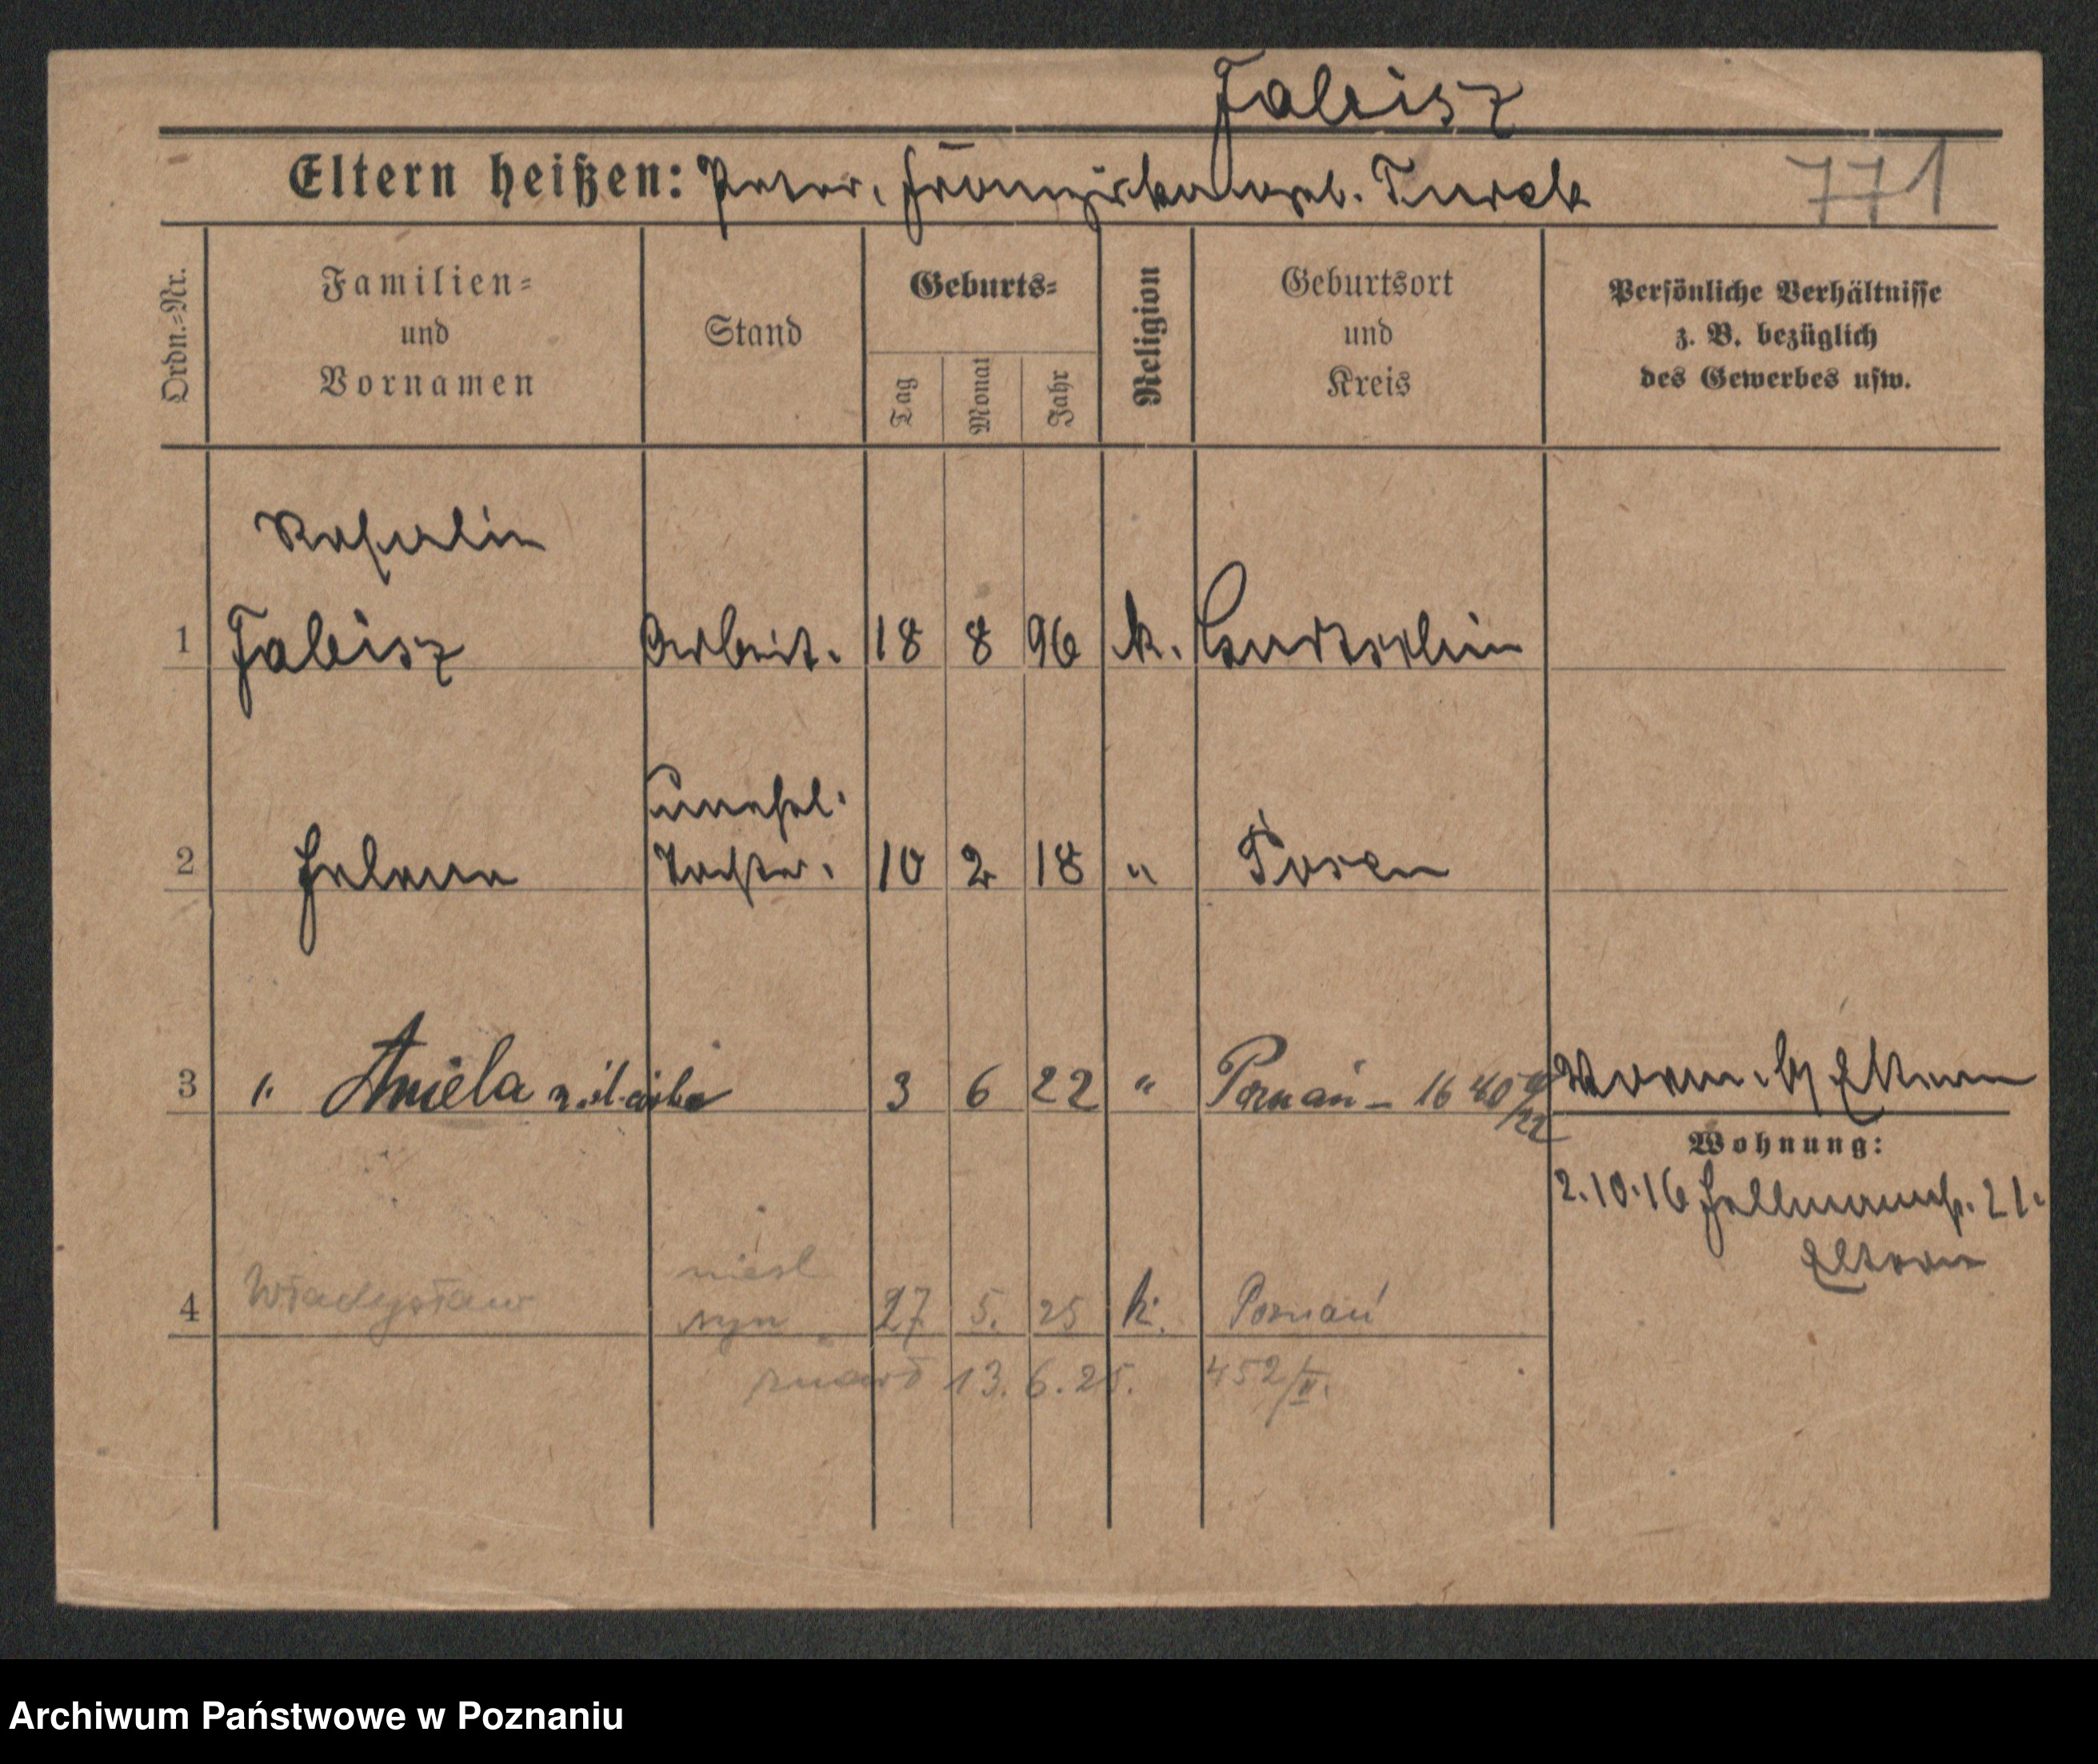 Fabisz
Eltern heißen: Peter, Franziska geb. Turek
771
Ordn.=Nr.
Familien=
und
Vornamen
Stand
Geburts=
Tag
Monat
Jahr
Religion
Geburtsort
und
Kreis
Persönliche Verhältnisse
z. B. bezüglich
des Gewerbes usw.
1
Fabisz
Arbeit.
18 8 96 k.
2 Helena
unehel.
Tochter.
10 2 18 " Posen
3 " Aniela
3 6 22 " Poznań – 1640
Eltern
Wohnung:
2.10.16 21.
Eltern
4 Władysław
niesl
syn
27 5. 25 k. Poznań
zmarł 13.6.25. 452/II.
Archiwum Państwowe w Poznaniu